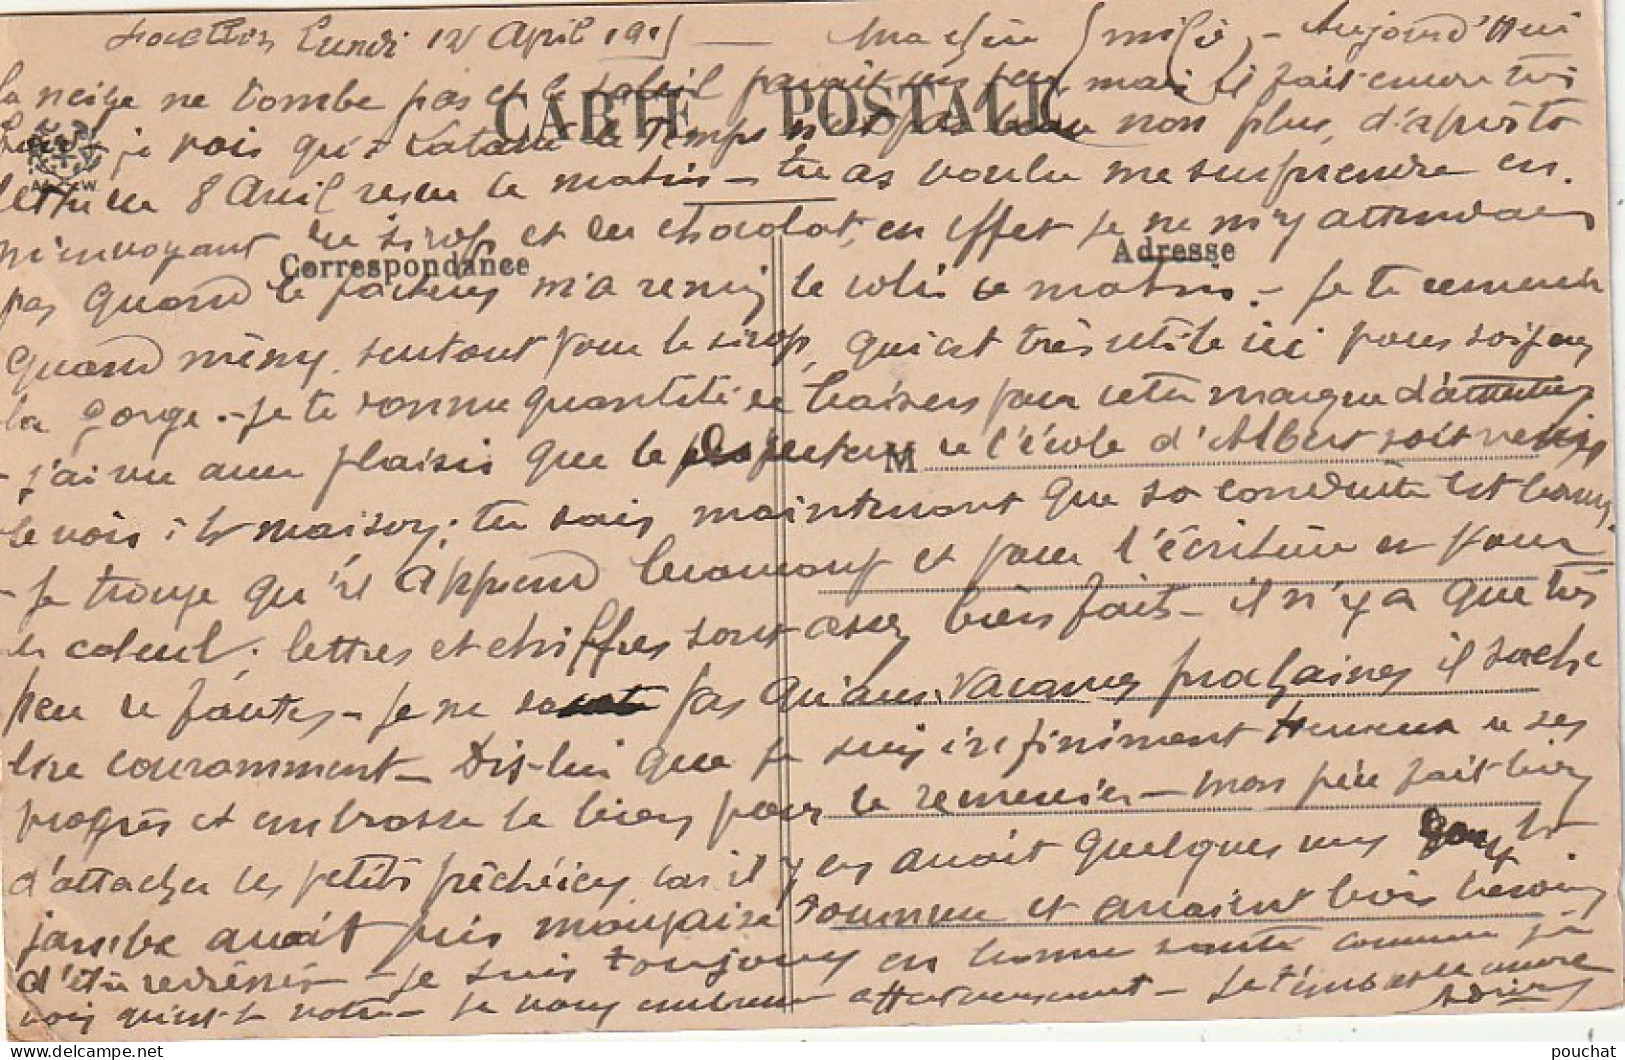 Lundi 12 April 1915 — Ma chère Emilie, — Aujourd'Hui
la neige ne tombe pas et le soleil parait un peu, mais il fait encore très
CARTE POSTALE
je vois qu'à le temps n'est pas beau non plus, d'après ta
lettre du 8 Avril reçue ce matin — tu as voulu me surprendre en
m'envoyant du sirop et du chocolat, en effet je ne m'y attendais
Correspondance
Adresse
pas quand le facteur m'a remis le colis ce matin. — Je te remercie
quand même, surtout pour le sirop, qui est très utile ici pour soigner
la gorge. — Je te donne quantité de baisers pour cette marque d'attention
M
— j'ai vu avec plaisir que le de l'école d'Albert soit venu
le voir à la maison; tu sais maintenant que sa conduite est bonne.
— Je trouve qu'il apprend beaucoup et pour l'écriture et pour
le calcul; lettres et chiffres sont assez bien faits — il n'y a que très
peu de fautes — Je ne doute pas qu'aux vacances prochaines il sache
lire couramment — Dis-lui que je suis infiniment Heureux de ses
progrès et embrasse le bien pour le remercier — mon père fait bien
d'attacher les petits pêchers car il y en avait quelques uns dont la
jambe avait pris mauvaise tournure et avaient bien besoin
d'être redressés — Je suis toujours en bonne santé comme je
vois qu'est la votre — Je vous embrasse affectueusement — Je t'embrasse encore
Adrien
pouchat